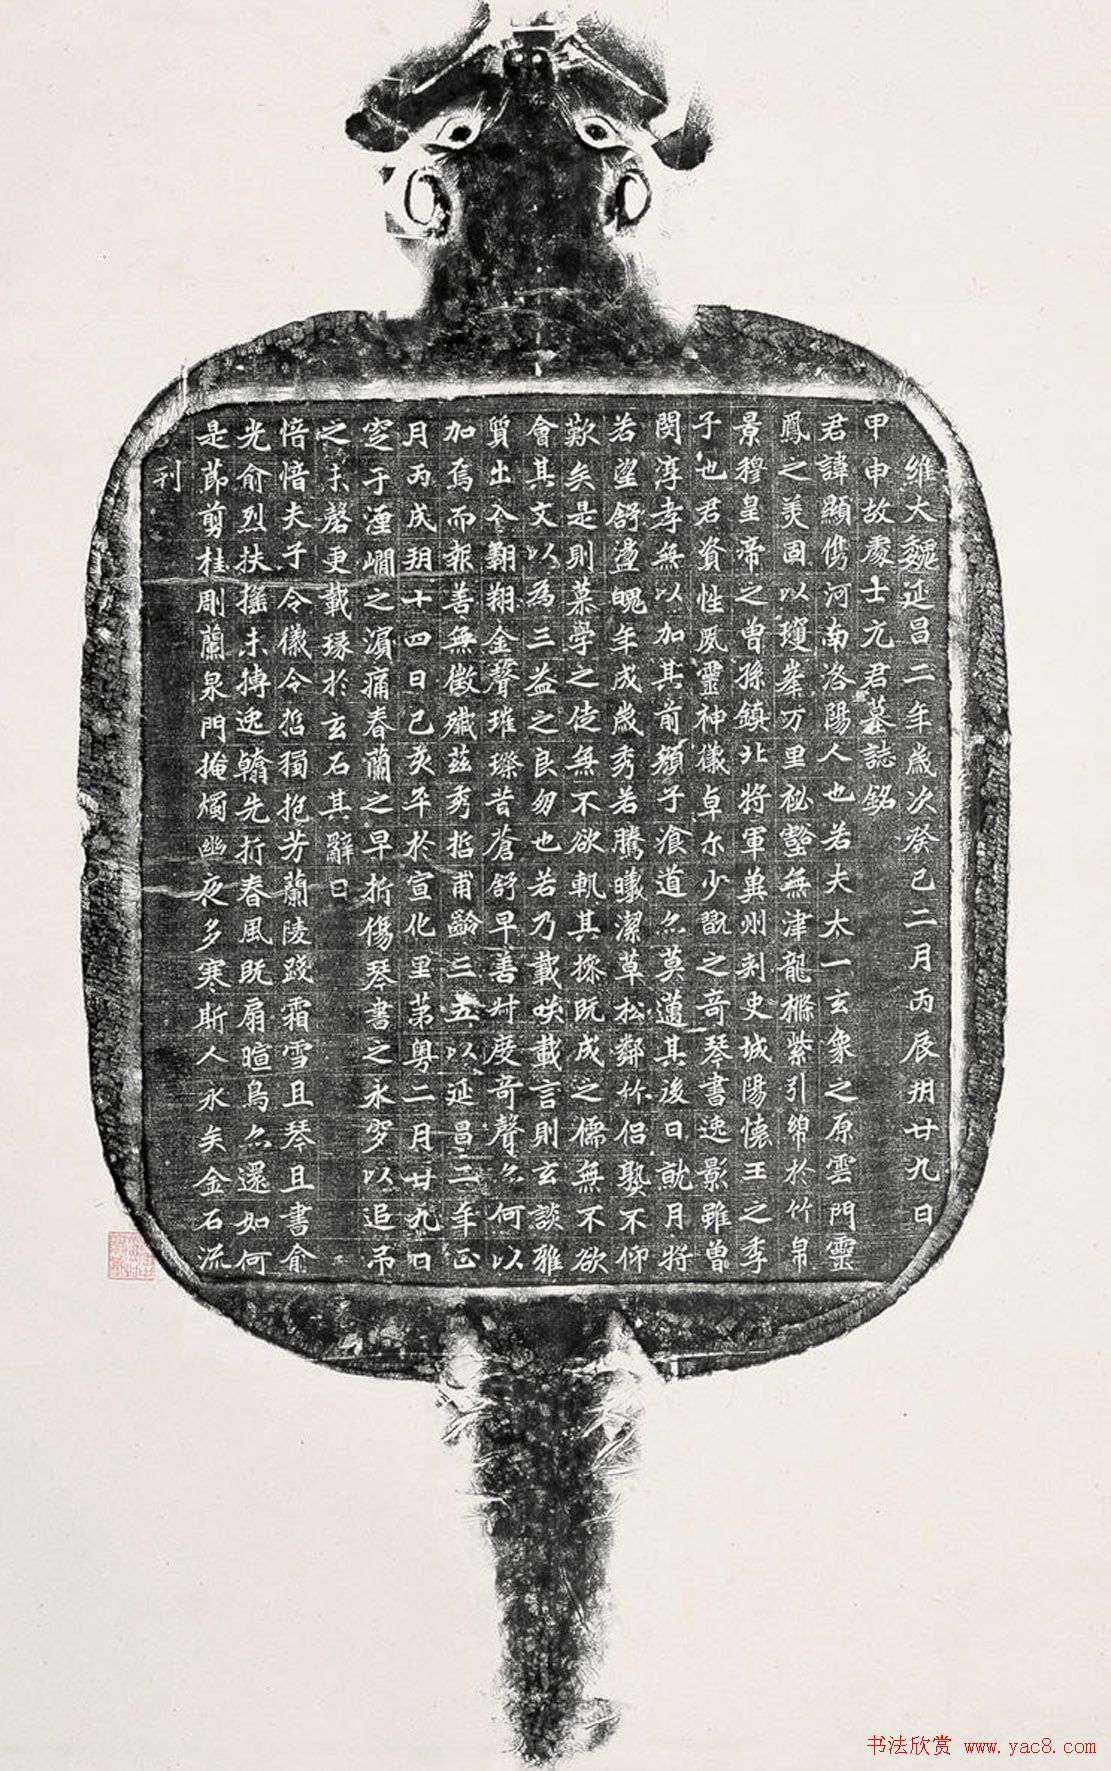 維大魏延昌二年歲次癸巳二月丙辰朔廿九日
甲申故處士元君墓誌銘
君諱顯儁河南洛陽人也若夫太一玄象之原雲門靈
鳳之美固以瓊峯万里祕壑無津龍檦紫引綿於竹帛
景穆皇帝之曾孫鎮北將軍冀州刾史城陽懷王之季
子也君資性夙靈神儀卓尔少翫之奇琴書逸影雖曾
閔淳孝無以加其前顏子飡道亦莫邁其後日就月將
若望舒盪魄年成歲秀若騰曦潔草松鄰竹侶熟不仰
歎矣是則慕學之徒無不欲軌其操既成之儒無不欲
會其文以為三益之良朋也若乃載咲載言則玄談雅
質出入翱翔金聲璀璨昔蒼舒早善叶度奇聲亦何以
加焉而報善無徵殲茲秀哲甫齡三五以延昌二年正
月丙戌朔十四日己亥卒於宣化里第粵二月廿九日
窆于瀍澗之濱痛春蘭之早折傷琴書之永穸以追吊
之未磬更載琭於玄石其辭曰
愔愔夫子令儀令哲獨抱芳蘭陵踐霜雪且琴且書俞
光俞烈扶搖未摶逸翰先折春風既扇暄鳥亦還如何
是節剪桂彫蘭泉門掩燭幽夜多寒斯人永矣金石流
刊
书法欣赏 www.yac8.com